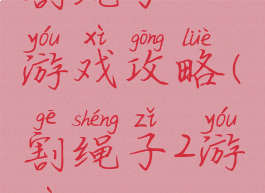 yóu xì gōng lüè
游戏攻略(
gē shéng zǐ yóu
割绳子2游